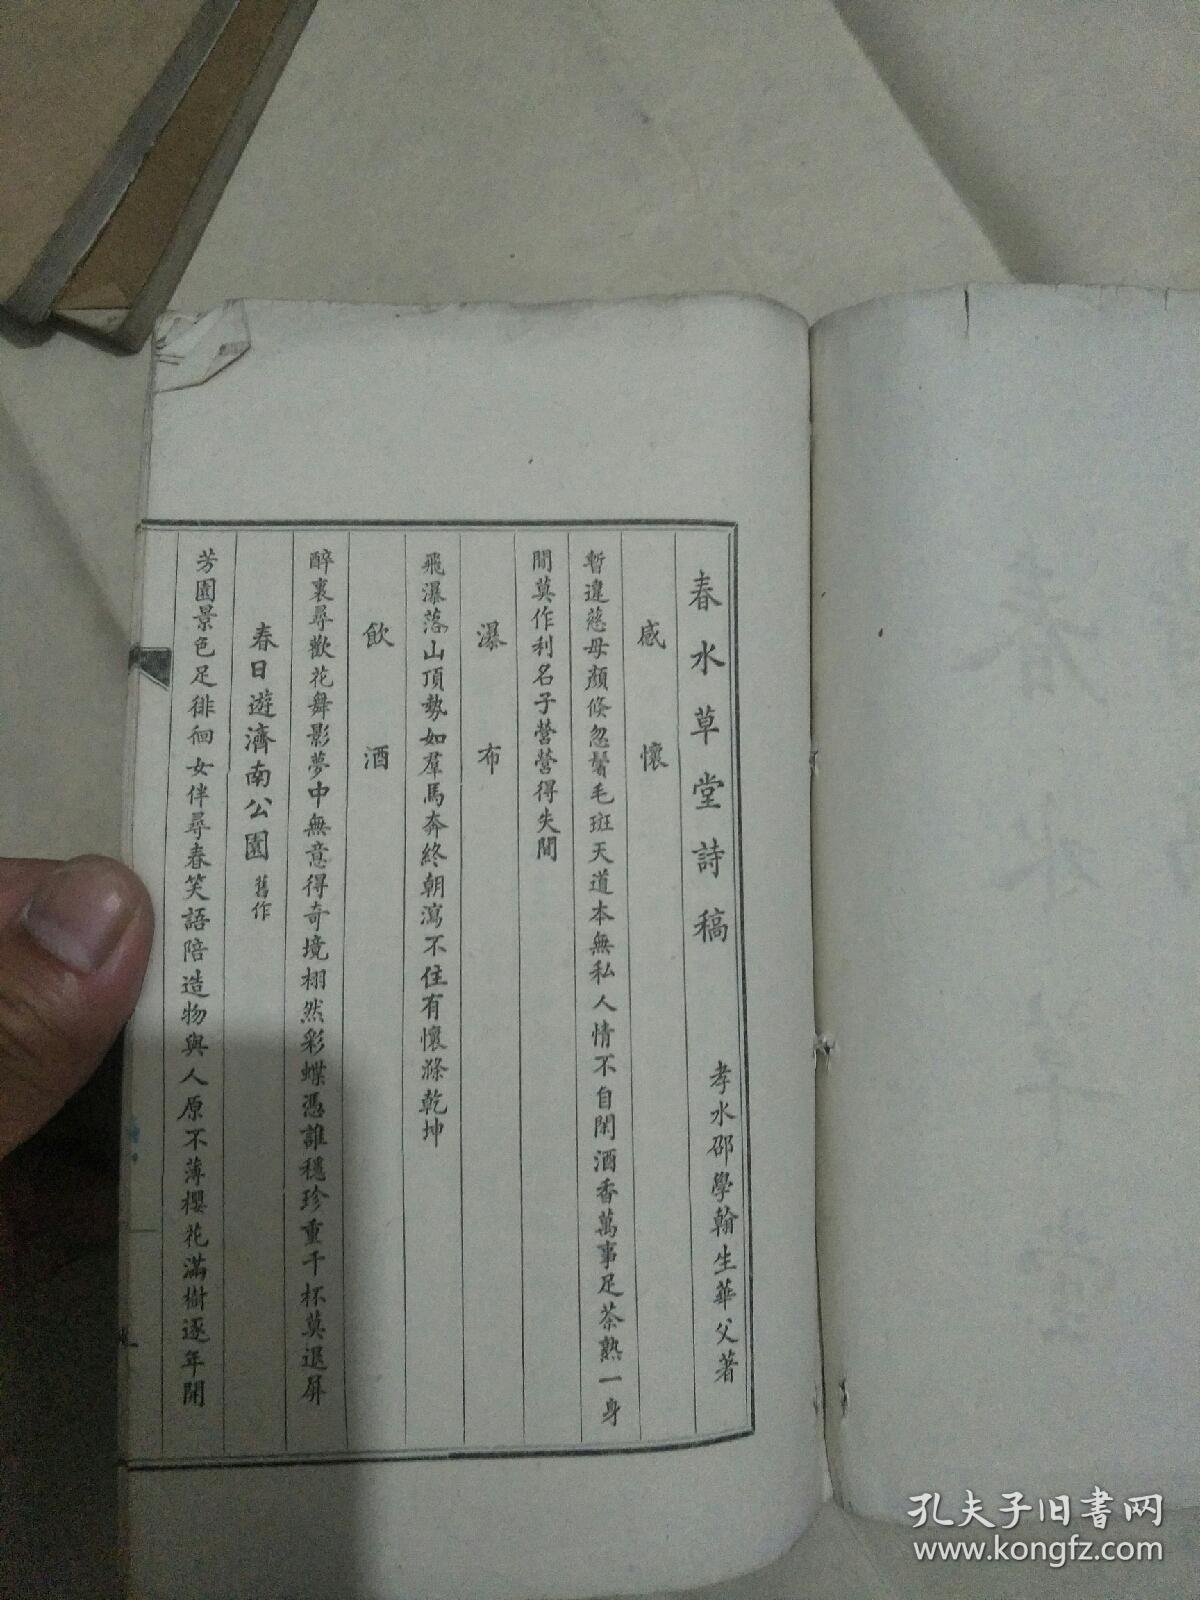 春水草堂詩稿 孝水邵學翰生華父著
感懷
暫違慈母顏倏忽鬢毛斑天道本無私人情不自閑酒香萬事足茶熟一身
間莫作利名子營營得失間
瀑布
飛瀑落山頂勢如羣馬奔終朝瀉不住有懷滌乾坤
飲酒
醉裏尋歡花舞影夢中無意得奇境栩然彩蝶憑誰穩珍重千杯莫退屏
春日遊濟南公園 舊作
芳園景色足徘徊女伴尋春笑語陪造物與人原不薄櫻花滿樹逐年開
孔夫子旧书网
www.kongfz.com